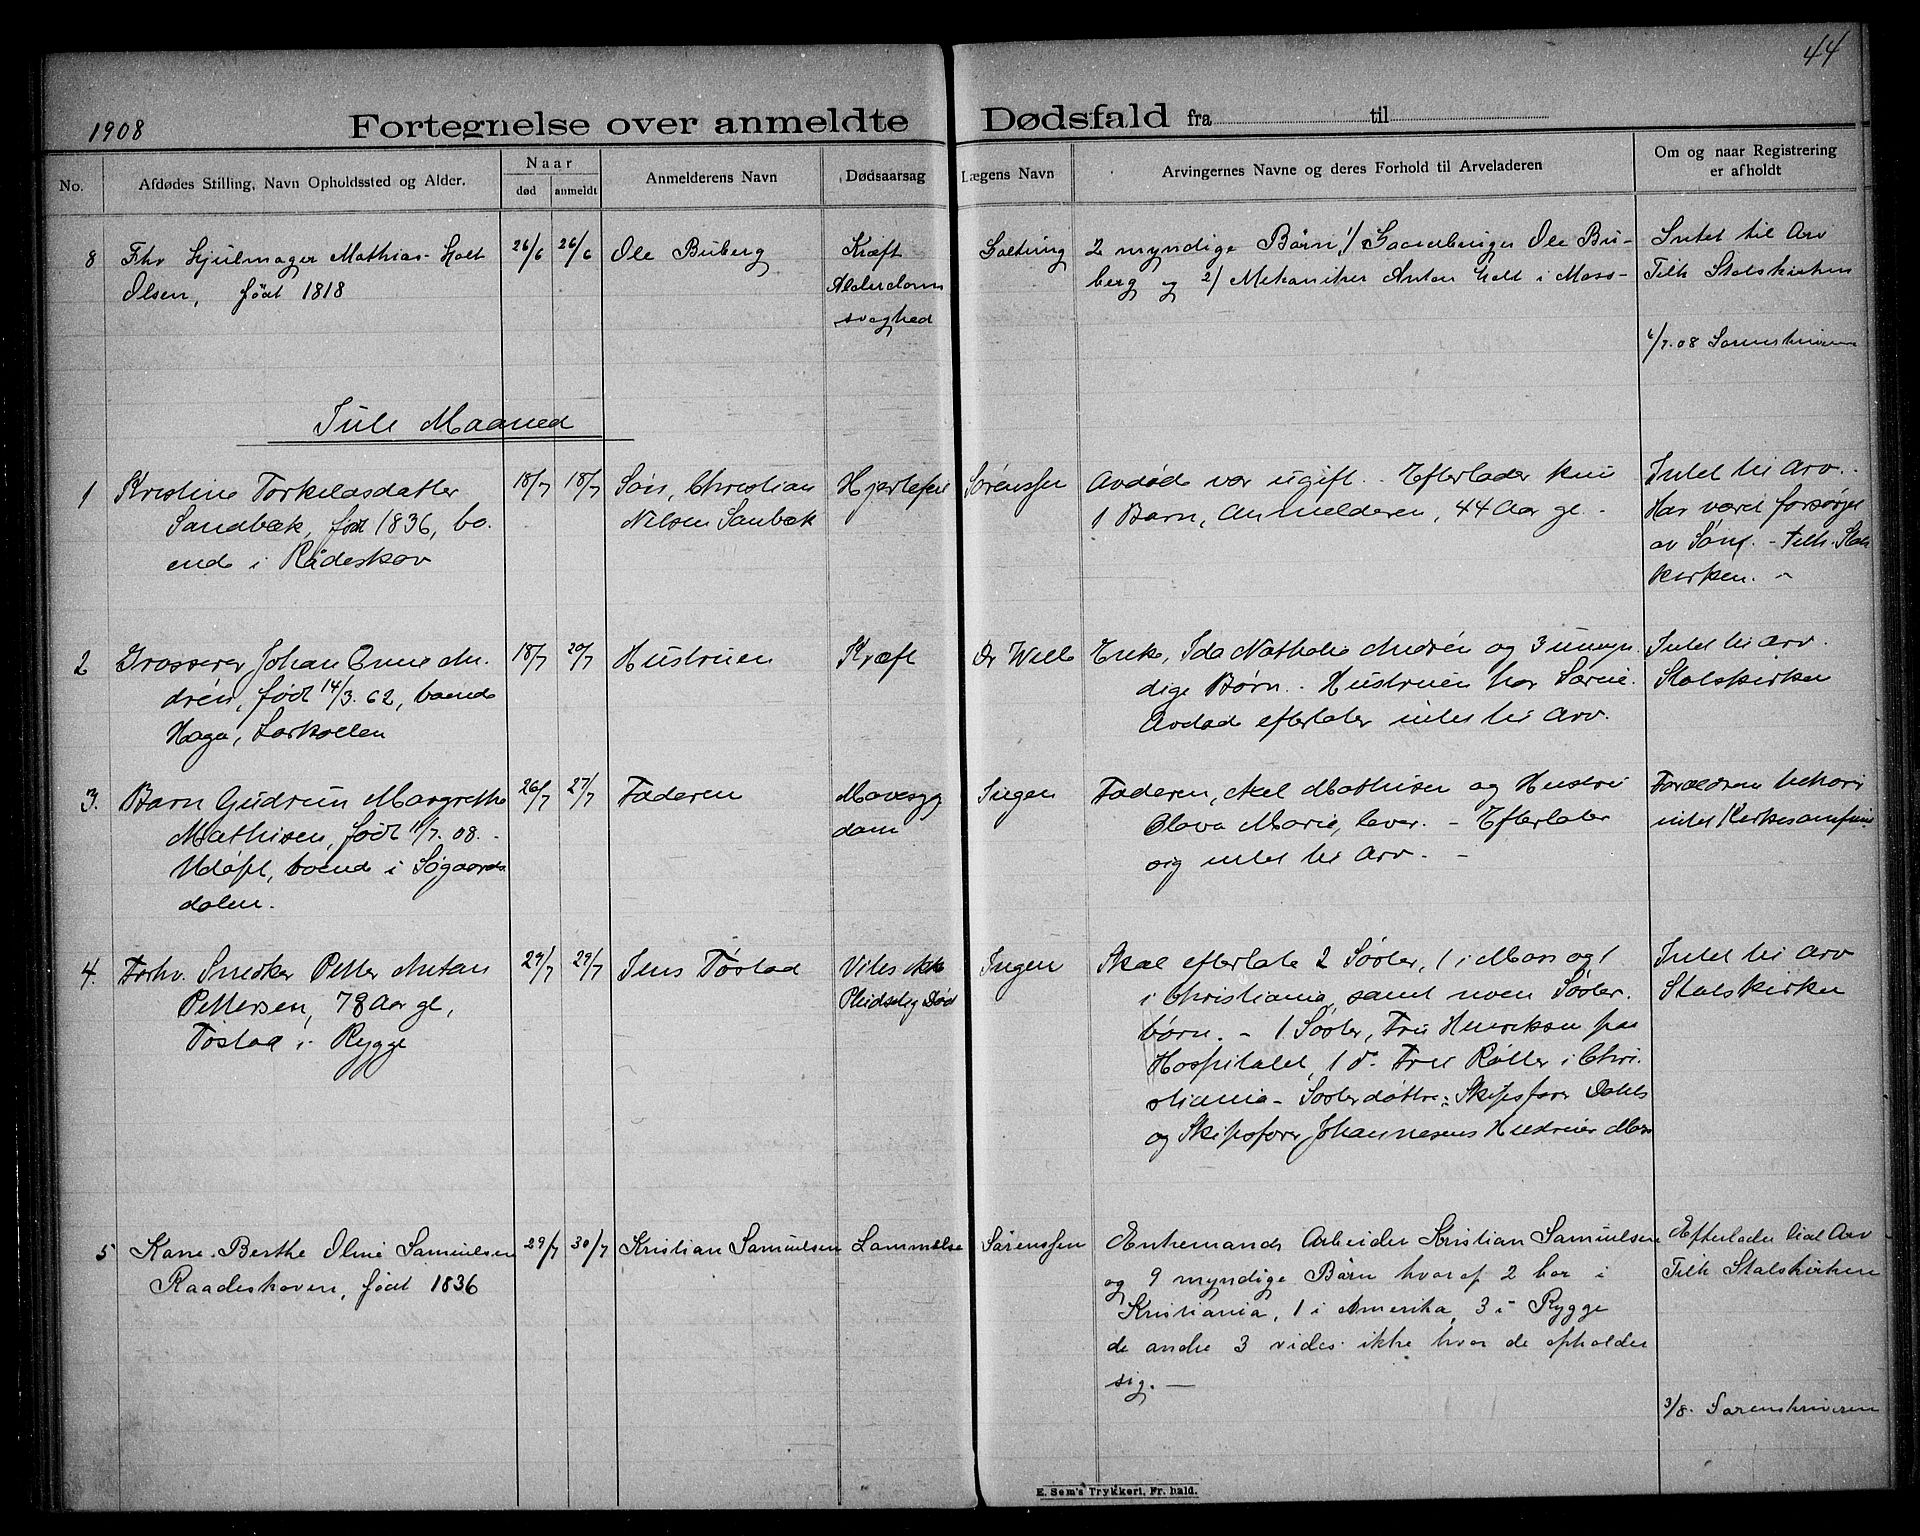 44
1908
Fortegnelse over anmeldte Dødsfald fra til
No.
Afdødes Stilling, Navn Opholdssted og Alder.
Naar
død
anmeldt
Anmelderens Navn
Dødsaarsag
Lægens Navn
Arvingernes Navne og deres Forhold til Arveladeren
Om og naar Registrering
er afholdt
8
Fhv Hjulmager Mathias Holt
Olsen, født 1818
26/6
26/6
Ole Buberg
Kræft
Alderdoms
svaghed
Galtung
2 myndige Børn 1/ Gaardbruger Ole Bu-
berg og 2/ Mekaniker Anton Holt i Moss-
Intet til Arv
Tilh Statskirken
6/7.08 Sorenskriveren
Juli Maaned
1
Kristine Torkildsdatter
Sandbæk, født 1836, bo
ende i Rådeskov
18/7
18/7
Søn, Christian
Nilsen Sanbæk
Hjertefeil
Sørenssen
Avdøde var ugift. - Efterlader kun
1 Barn, Anmelderen, 44 Aar gl. -
Intet til Arv.
Har været forsørget
av Søn. - Tilh. Stats
kirken. -
2
Grosserer Johan Arne An-
drén, født 14/3.62, boende
Haga, Larkollen
18/7
20/7
Hustruen
Kræft
Dr Wille
Enke, Ida Nathalie Andrén og 3 umyn
dige Børn. - Hustruen har Særeie.
Avdøde efterlater intet til Arv.
Intet til Arv.
Statskirken
3.
Barn Gudrun Margrethe
Mathisen, født 11/7.08. -
Udøpt, boende i Søgaards
dalen.
26/7
27/7
Faderen
Mavesyg
dom
Ingen
Faderen, Axel Mathisen og Hustru
Olava Marie, lever. - Efterlater
sig intet til Arv. -
Forældrene tilhører
intet Kirkesamfund
4.
Forhv. Snedker Petter Anton
Pettersen, 78 Aar gl,
Tøstad i Rygge
29/7
29/7
Jens Tøstad
Vites ikke
Pludselig Død
Ingen
Skal efterlate 2 Søster, 1 i Moss og 1
i Christiania, samt noen Søster.
børn. - 1 Søster, Fru Henriksen paa
Hospitalet, 1 do. Fru Røller i Chri-
stiania - Søsterdøttre: Skipsfører Dahls
og Skipsfører Johannesens Hustruer Moss
Intet til Arv
Statskirken
5
Kone Berthe Oline Samuelsen
Raadeskoven, født 1836
29/7
30/7
Kristian Samuelsen
Lammelse
Sørenssen
Enkemand Arbeider Kristian Samuelsen
og 9 myndige Børn hvoraf 2 bor i
Kristiania, 1 i Amerika, 3 i Rygge
de andre 3 vides ikke hvor de opholder
sig. -
Efterlader lidt Arv
Tilh Statskirken
3/8. Sorenskriveren
E. Sem's Trykkeri, Fr. hald.